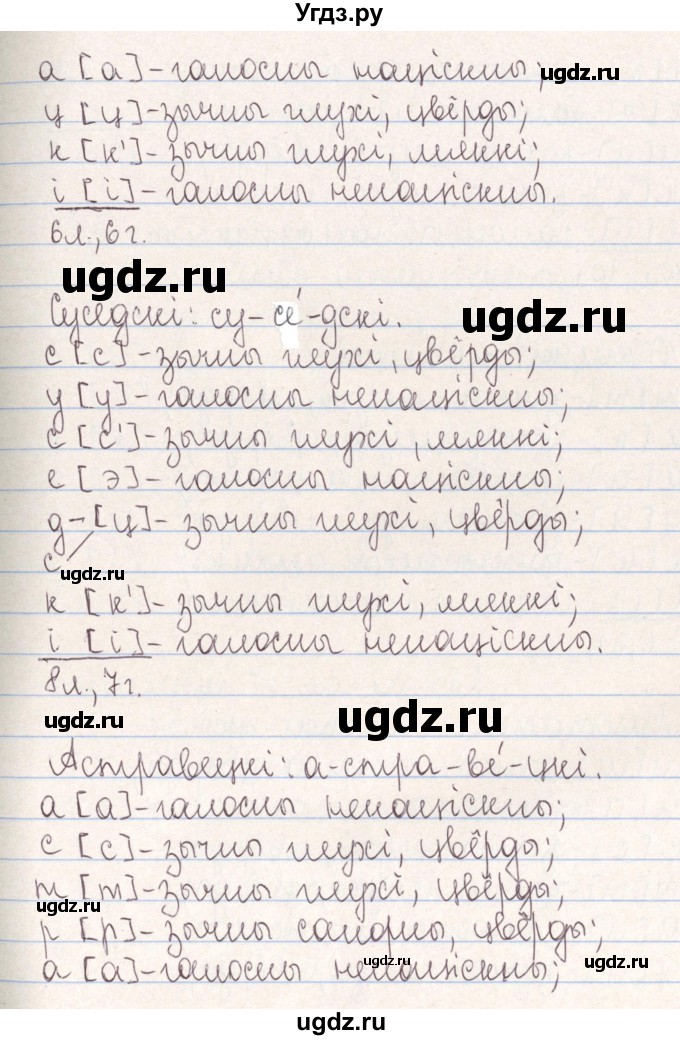 Угдз.ру
а [а] - галосны націскны;
ugdz.ru
ц [ц] - зычны глухі, цвёрды;
к [к'] - зычны глухі, мяккі;
і [і] - галосны ненаціскны.
6л., 6г.
ugdz.ru
ugdz.ru
Суседскі: су-се́-дскі.
с [с] - зычны глухі, цвёрды;
у [у] - галосны ненаціскны;
с [с'] - зычны глухі, мяккі;
е [э] - галосны націскны;
д - [ц] - зычны глухі, цвёрды;
с
ugdz.ru
к [к'] - зычны глухі, мяккі;
і [і] - галосны ненаціскны.
8л., 7г.
ugdz.ru
ugdz.ru
Астравецкі: а-стра-ве́-цкі.
а [а] - галосны ненаціскны;
с [с] - зычны глухі, цвёрды;
т [т] - зычны глухі, цвёрды;
ugdz.ru
р [р] - зычны санорны, цвёрды;
а [а] - галосны ненаціскны;
ugdz.ru
ugdz.ru
ugdz.ru